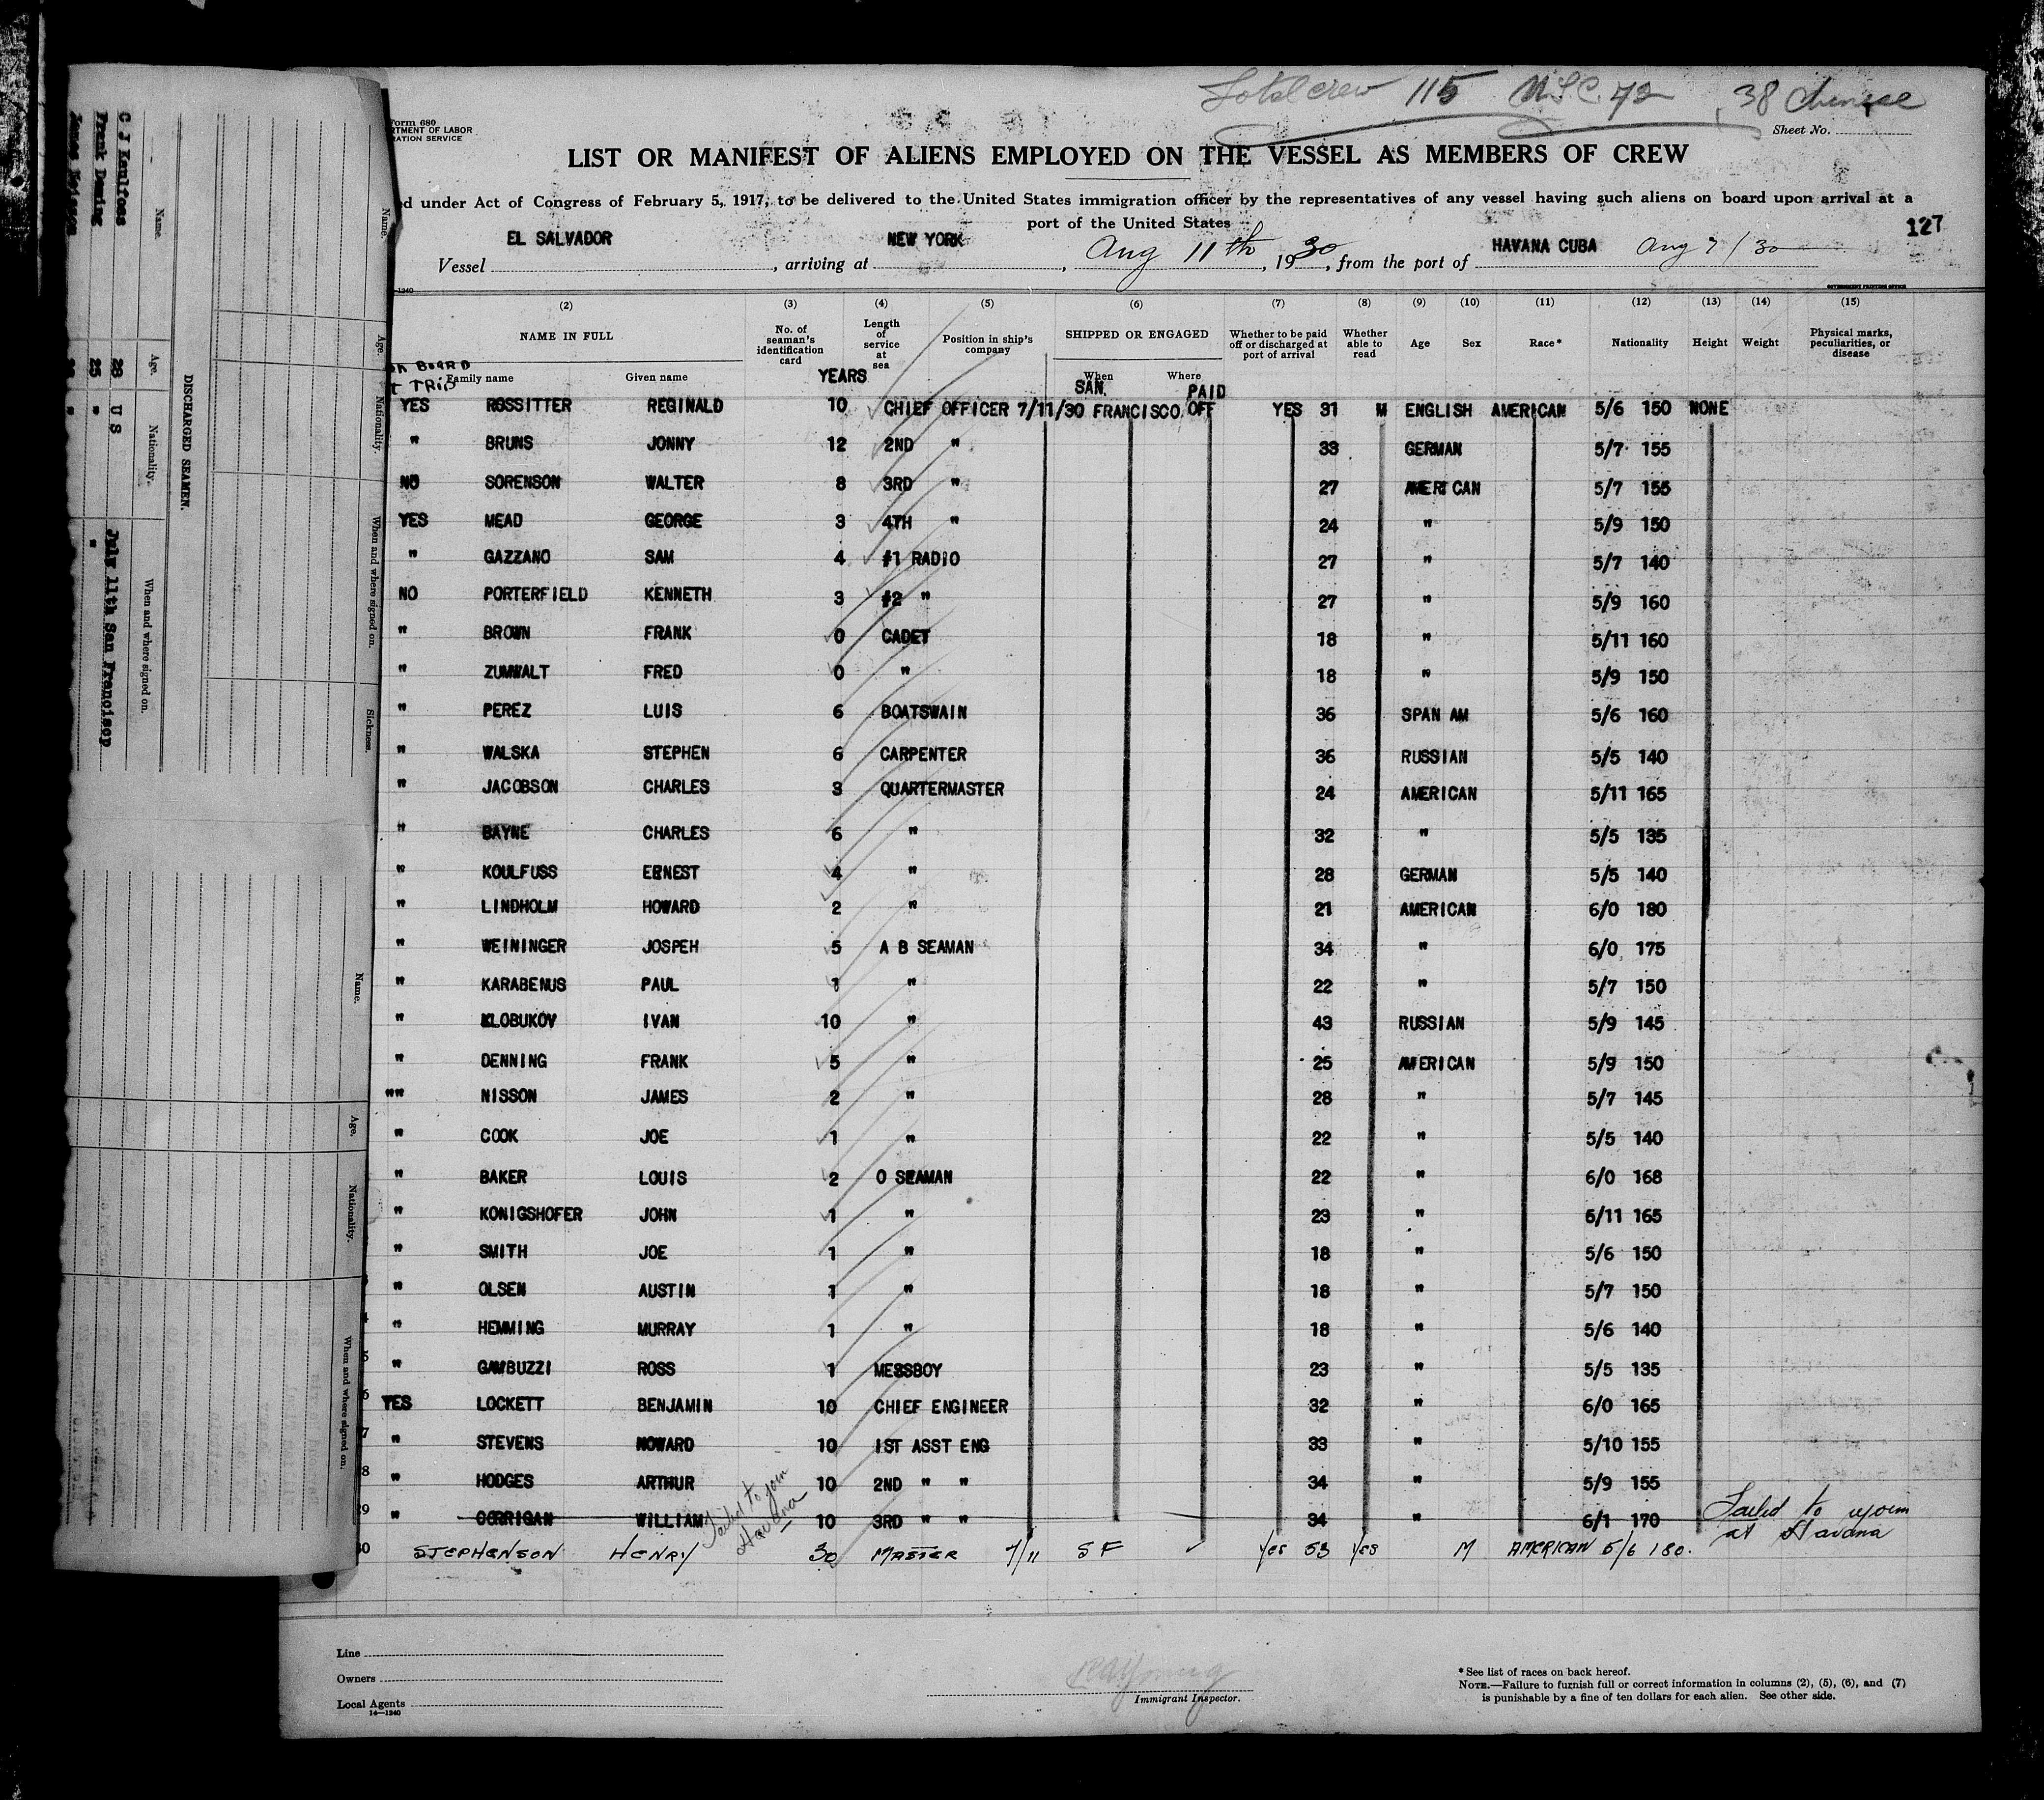 Total crew 115 U.S.C. 72 38 Chinese
Form 680
RTMENT OF LABOR
RATION SERVICE
Sheet No.
LIST OR MANIFEST OF ALIENS EMPLOYED ON THE VESSEL AS MEMBERS OF CREW
ed under Act of Congress of February 5, 1917, to be delivered to the United States immigration officer by the representatives of any vessel having such aliens on board upon arrival at a
port of the United States
127
Vessel EL SALVADOR, arriving at NEW YORK, Aug 11th, 1930, from the port of HAVANA CUBA Aug 7/30
-1240
GOVERNMENT PRINTING OFFICE
(2) (3) (4) (5) (6) (7) (8) (9) (10) (11) (12) (13) (14) (15)
NAME IN FULL No. of seaman's identification card Length of service at sea Position in ship's company SHIPPED OR ENGAGED Whether to be paid off or discharged at port of arrival Whether able to read Age Sex Race* Nationality Height Weight Physical marks, peculiarities, or disease
ON BOARD
T TRIP Family name Given name YEARS When Where
YES ROSSITTER REGINALD 10 CHIEF OFFICER 7/11/30 SAN FRANCISCO PAID OFF YES 31 M ENGLISH AMERICAN 5/6 150 NONE
" BRUNS JONNY 12 2ND " 33 GERMAN 5/7 155
NO SORENSON WALTER 8 3RD " 27 AMERICAN 5/7 155
YES MEAD GEORGE 3 4TH " 24 " 5/9 150
" GAZZANO SAM 4 #1 RADIO 27 " 5/7 140
NO PORTERFIELD KENNETH 3 #2 " 27 " 5/9 160
" BROWN FRANK 0 CADET 18 " 5/11 160
" ZUMWALT FRED 0 " 18 " 5/9 150
" PEREZ LUIS 6 BOATSWAIN 36 SPAN AM 5/6 160
" WALSKA STEPHEN 6 CARPENTER 36 RUSSIAN 5/5 140
" JACOBSON CHARLES 3 QUARTERMASTER 24 AMERICAN 5/11 165
" BAYNE CHARLES 6 " 32 " 5/5 135
" KOULFUSS ERNEST 4 " 28 GERMAN 5/5 140
" LINDHOLM HOWARD 2 " 21 AMERICAN 6/0 180
" WEININGER JOSPEH 5 A B SEAMAN 34 " 6/0 175
" KARABENUS PAUL 1 " 22 " 5/7 150
" KLOBUKOV IVAN 10 " 43 RUSSIAN 5/9 145
" DENNING FRANK 5 " 25 AMERICAN 5/9 150
"" NISSON JAMES 2 " 28 " 5/7 145
" COOK JOE 1 " 22 " 5/5 140
" BAKER LOUIS 2 O SEAMAN 22 " 6/0 168
" KONIGSHOFER JOHN 1 " 23 " 5/11 165
" SMITH JOE 1 " 18 " 5/6 150
" OLSEN AUSTIN 1 " 18 " 5/7 150
" HEMMING MURRAY 1 " 18 " 5/6 140
" GAMBUZZI ROSS 1 MESSBOY 23 " 5/5 135
YES LOCKETT BENJAMIN 10 CHIEF ENGINEER 32 " 6/0 165
" STEVENS HOWARD 10 1ST ASST ENG 33 " 5/10 155
" HODGES ARTHUR 10 2ND " " 34 " 5/9 155
" CORRIGAN WILLIAM Failed to join Havana 10 3RD " " 34 " 6/1 170 Failed to rejoin at Havana
30 STEPHENSON HENRY 30 MASTER 7/11 S F ✓ yes 53 yes M AMERICAN 5/6 180.
Line
Owners
Local Agents
14—1240
Immigrant Inspector.
*See list of races on back hereof.
NOTE.—Failure to furnish full or correct information in columns (2), (5), (6), and (7)
is punishable by a fine of ten dollars for each alien. See other side.
DISCHARGED SEAMEN.
Name. Age. Nationality. When and where signed on.
C J Koulfoss 28 U S July 11th San Francisco
Frank Dening 25 " "
Name. Age. Nationality. When and where signed on. Sickness.
Name. Age. Nationality. When and where signed on.